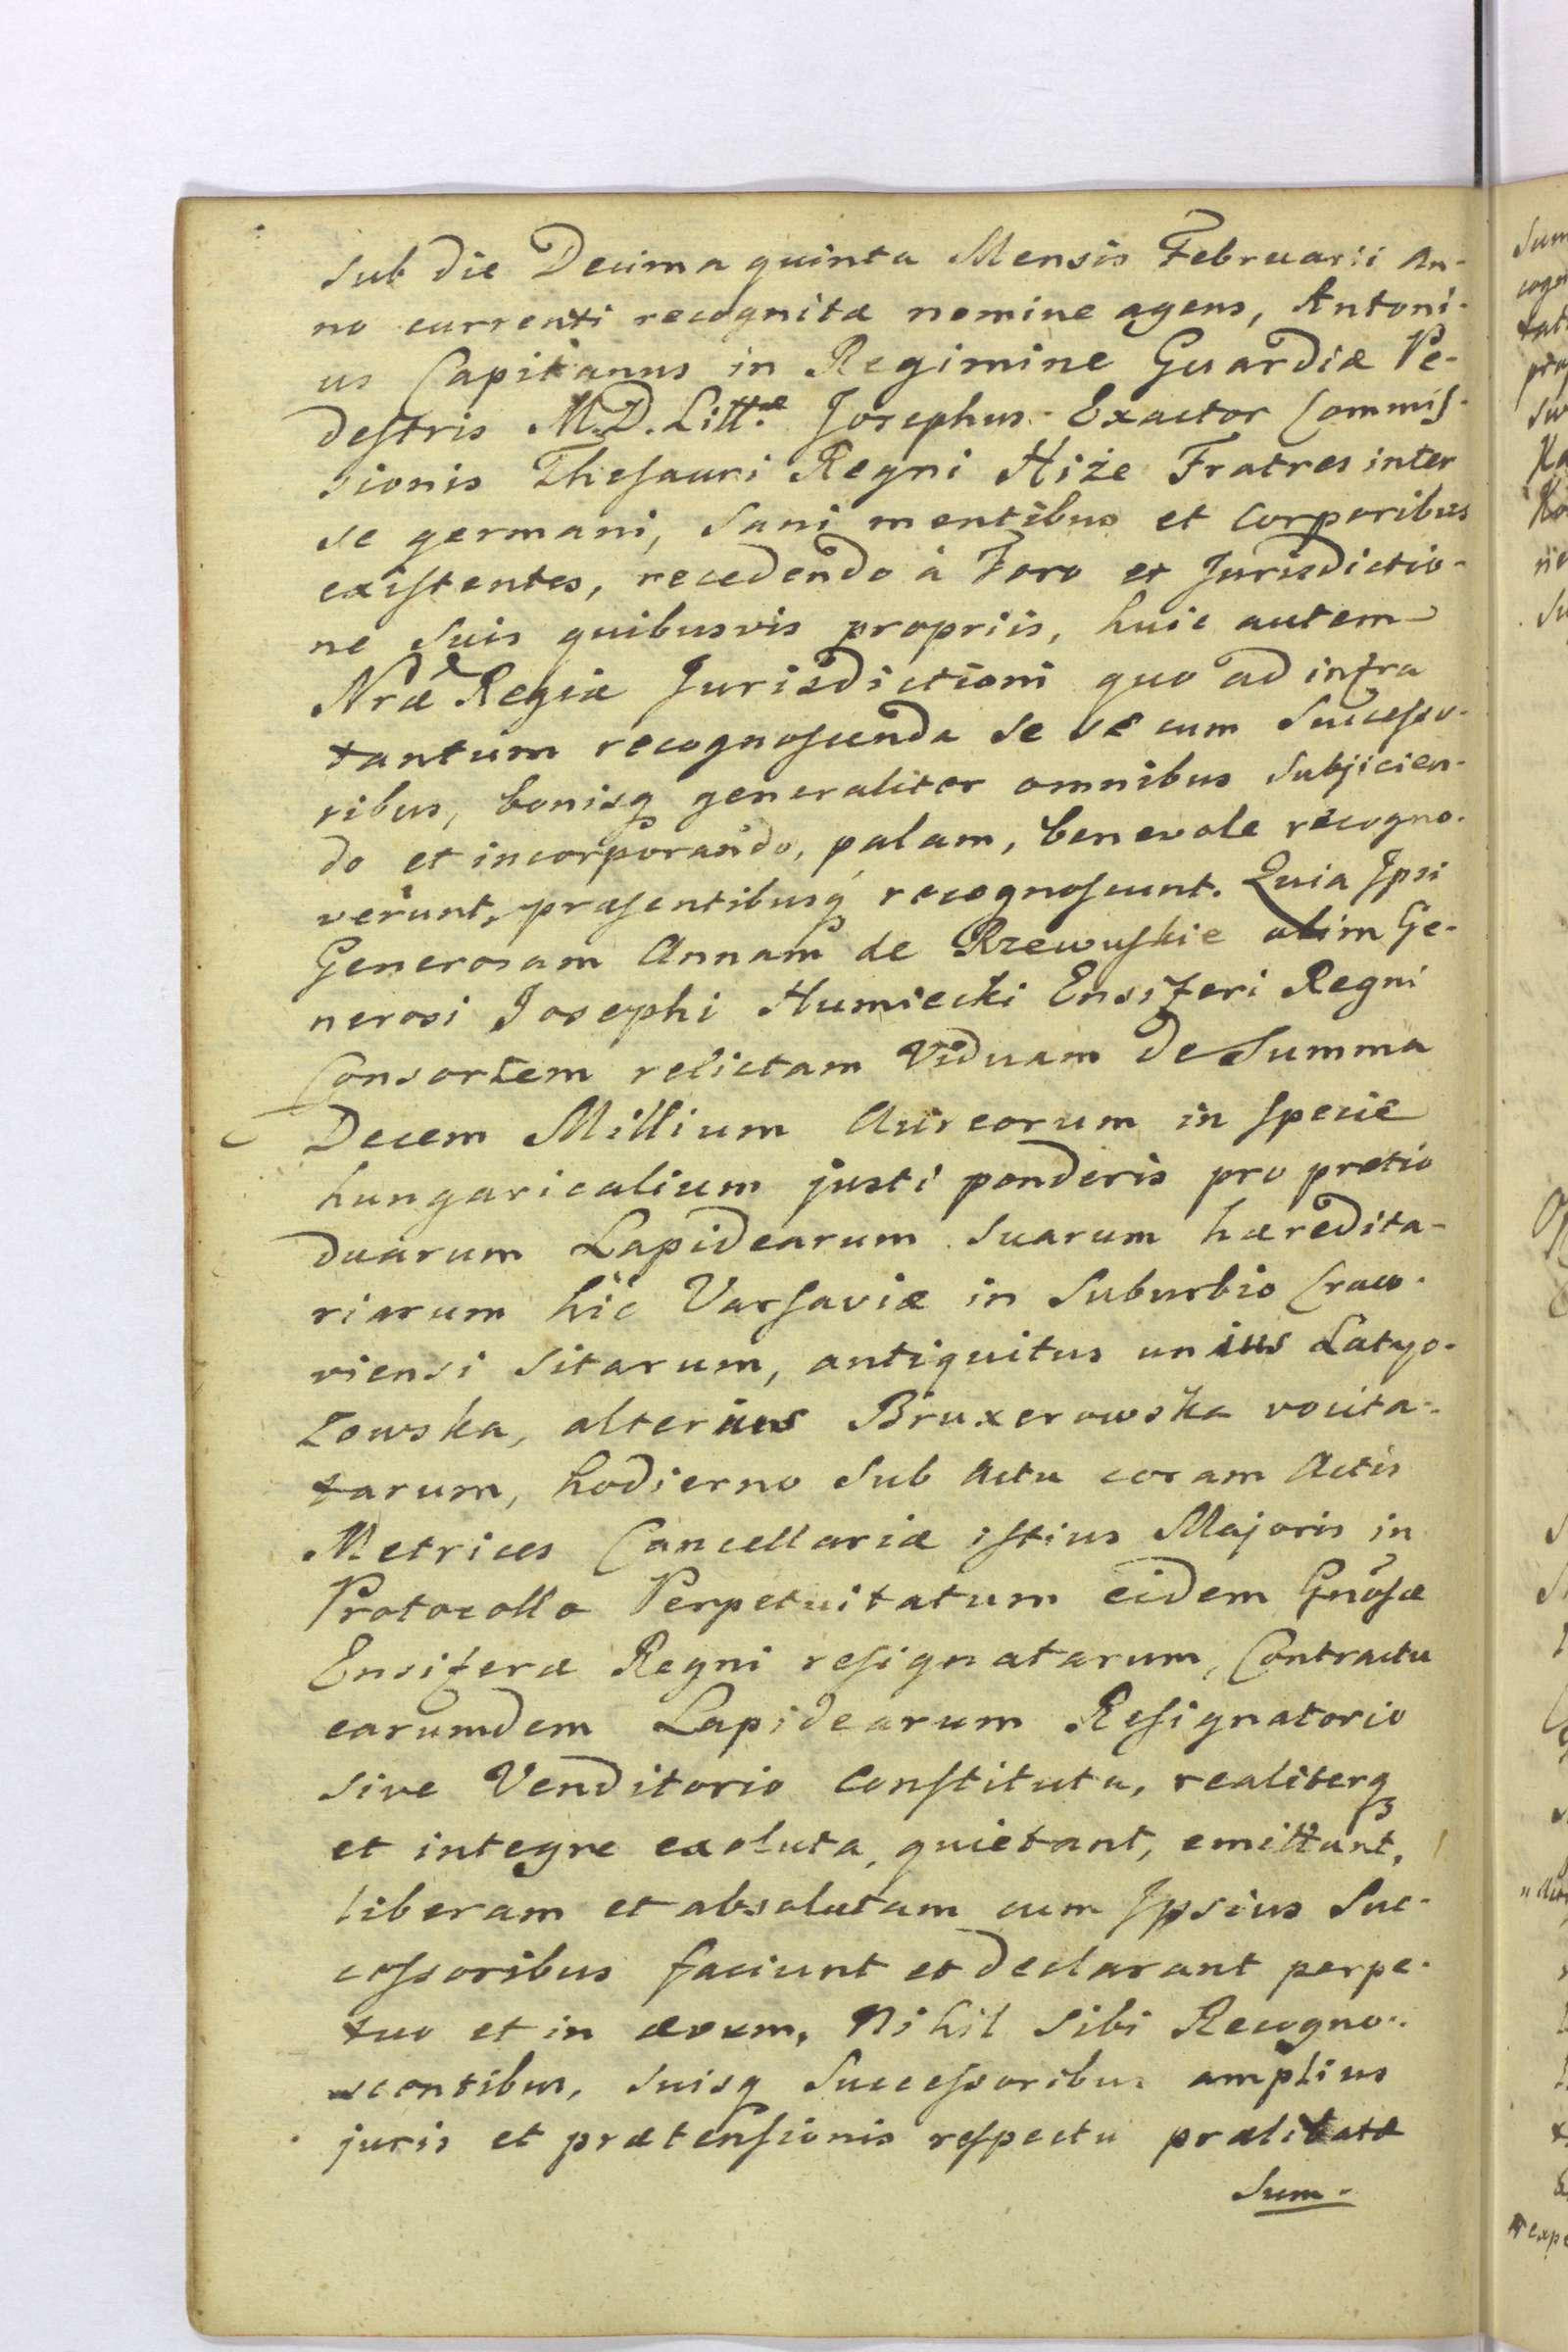 Sub die Decima quinta Mensis Februarii An-
no currenti recognitæ nomine agens, Antoni-
us Capitanus in Regimine Guardiæ Pe-
destris M.D. Litt.æ Josephus Exactor Commis-
sionis Thesauri Regni Hiże Fratres inter
se germani, Sani mentibus et Corporibus
existentes, recedendo à Foro et Jurisdictio-
ne Suis quibusvis propriis, huic autem
Nræ Regiæ Jurisdictioni quo ad infra
tantum recognoscenda Se se cum Successo-
ribus, bonisq generaliter omnibus Subjicien-
do et incorporando, palam, benevole recogno-
verunt, præsentibusq recognoscunt. Quia Ipsi
Generosam Annam de Rzewuskie olim Ge-
nerosi Josephi Humiecki Ensiferi Regni
Consortem relictam Viduam de Summa
Decem Millium Aureorum in Specie
hungaricalium justi ponderis pro pretio
duarum Lapidearum Suarum hæredita-
riarum hic Varsaviæ in Suburbio Craco-
viensi Sitarum, antiquitus unius Latyo-
zowska, alterius Bruxerowska vocita-
tarum, hodierno Sub Actu coram Actis
Metrices Cancellariæ istius Majoris in
Protocollo Perpetuitatum eidem Gnosæ
Ensiferæ Regni resignatarum, Contractu
earumdem Lapidearum Resignatorio
sive Venditorio Constituta, realiterq
et integre exoluta, quietant, emittunt,
liberam et absolutam cum Ipsius Suc-
cessoribus faciunt et declarant perpe-
tuo et in ævum, Nihil Sibi Recogno-
scentibus, Suisq Successoribus amplius
juris et prætensionis respectu prælibatæ
Sum-